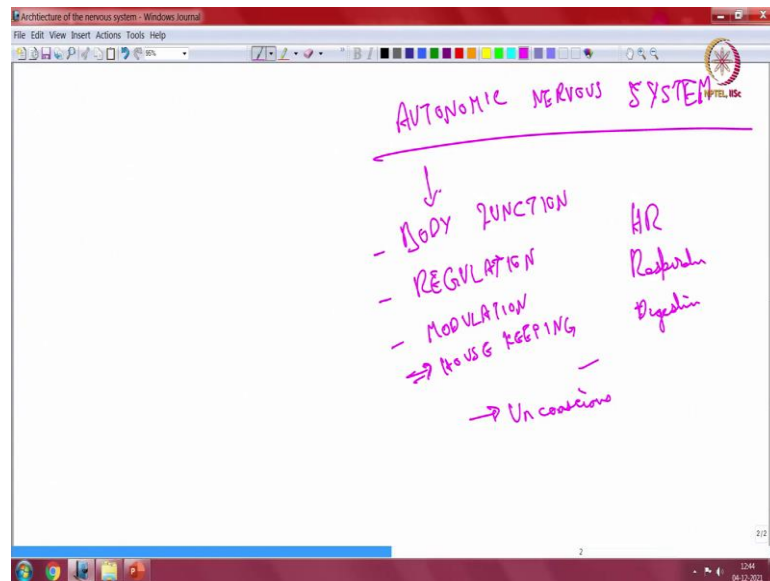 Archtiecture of the nervous system - Windows Journal
File Edit View Insert Actions Tools Help
95%
B I
NPTEL, IISc
AUTONOMIC NERVOUS SYSTEM
- BODY FUNCTION HR
- REGULATION
- MODULATION Digestion
⇒ HOUSE KEEPING
→ Unconscious
2/2
2
12:44
04-12-2021